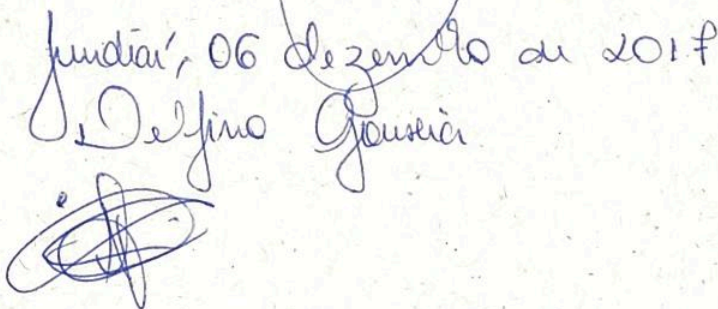 Jundiaí, 06 dezembro de 2017
Delfino Gouveia